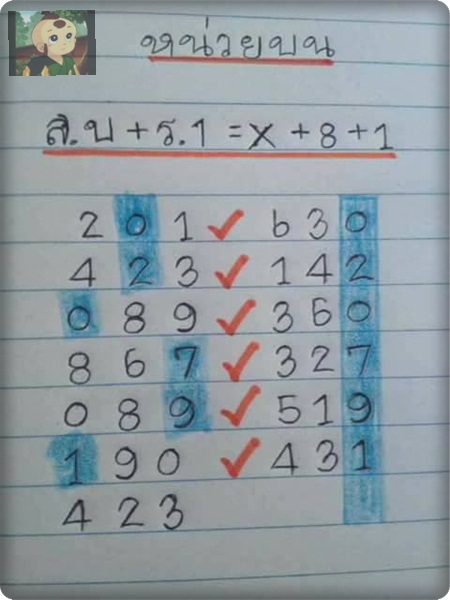 หน่วยบน
ส.บ + ร.1 = x + 8 + 1
2 0 1 ✓ 6 3 0
4 2 3 ✓ 1 4 2
0 8 9 ✓ 3 6 0
8 6 7 ✓ 3 2 7
0 8 9 ✓ 5 1 9
1 9 0 ✓ 4 3 1
4 2 3